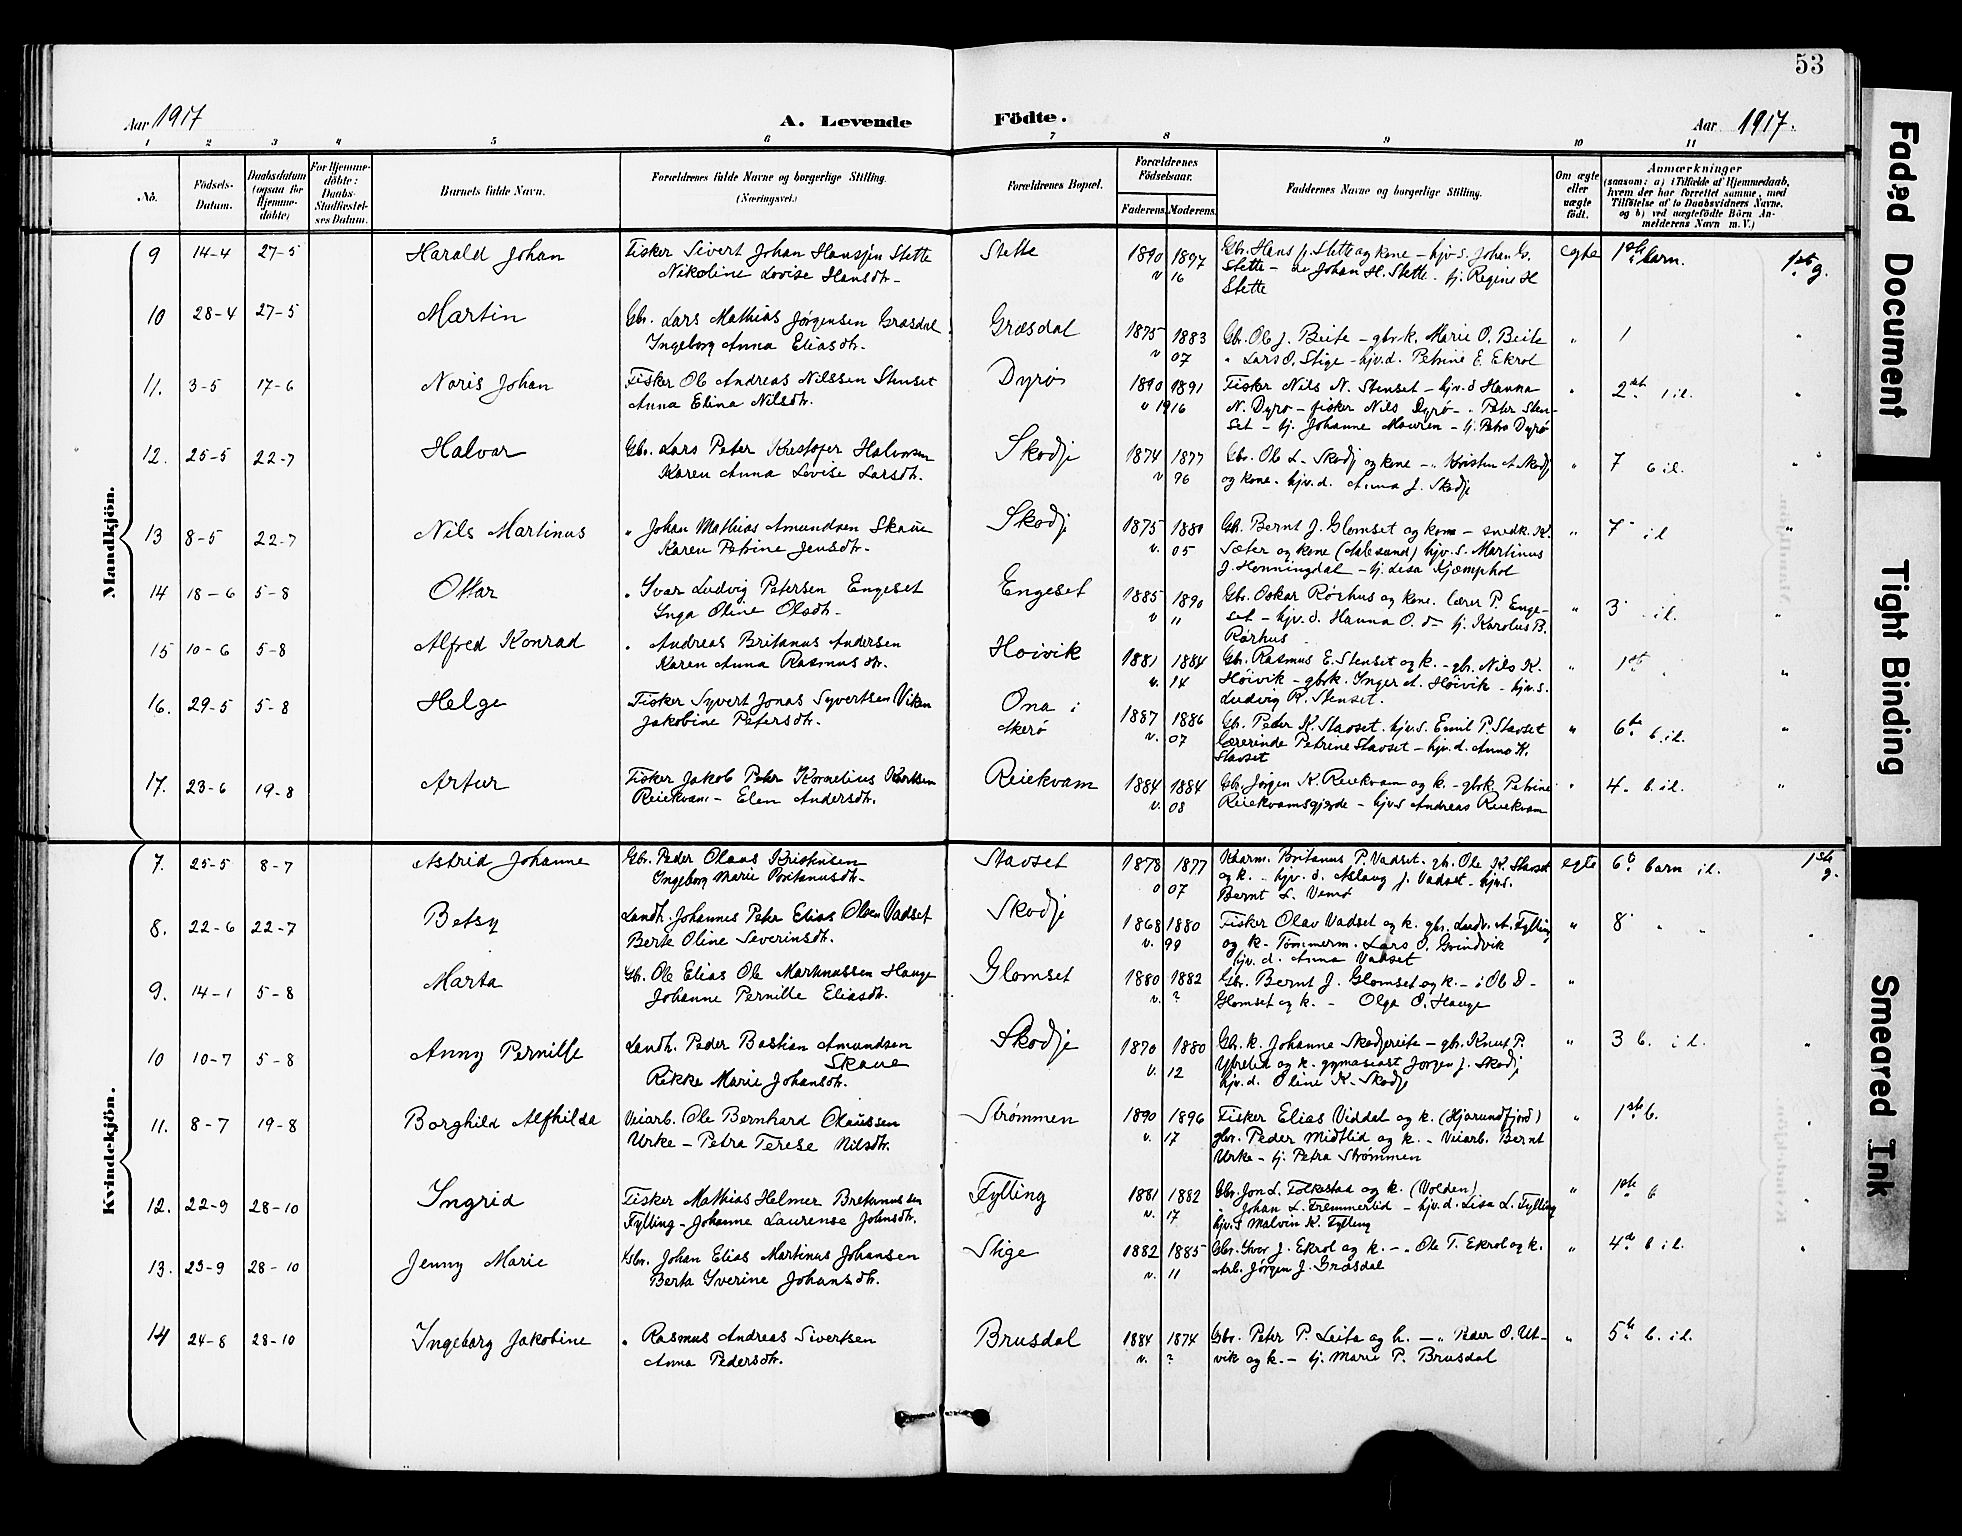 53
Aar 1917
A. Levende
Födte.
Aar 1917.
1 2 3 4 5 6 7 8 9 10 11
No.
Födsels-
Datum.
Daabsdatum
(ogsaa for
Hjemme-
döbte)
For Hjemme-
döbte:
Daabs-
Stadfæstel-
ses Datum.
Barnets fulde Navn.
Forældrenes fulde Navne og borgerlige Stilling.
(Næringsvei.)
Forældrenes Bopæl.
Forældrenes
Födselsaar.
Faderens. Moderens.
Faddernes Navne og borgerlige Stilling.
Om ægte
eller
uægte
födt.
Anmærkninger
(saasom: a) i Tilfælde af Hjemmedaab,
hvem der har forrettet samme, med
Tilföielse af to Daabsvidners Navne,
og b) ved uægtefödte Börn An-
melderens Navn m. V.)
Mandkjön.
9 14-4 27-5 Harald Johan
Fisker Sivert Johan Hansen Stette
Nikoline Lovise Hansdtr.
Stette
1890 1897
v 16
Gbr. Hans J. Stette og kone - hjv. s. Johan G.
Stette - Johan H. Stette - tj. Regine H
Stette
egte 1ste barn. 1ste g.
10 28-4 27-5 Martin
Gbr. Lars Mathias Jørgensen Græsdal
Ingeborg Anna Eliasdtr.
Græsdal
1875 1883
v 07
Gbr. Ole J. Beite - gbrk. Marie O. Beite
" Lars O. Stige - hjv. d. Petrine E. Ekrol
" 1 "
11. 3-5 17-6 Noris Johan
Fisker Ole Andreas Nilssen Stenset
Anna Elina Nilsdtr.
Dyrø
1890 1891
v 1916
Fisker Nils N. Stenset - hjv. d Hanna
N. Dyrø - fisker Nils Dyrø - " Peter Sten-
set - tj. Johanne Mauren - tj. Petra Dyrø
" 2det i il. "
12. 25-5 22-7 Halvar
Gbr. Lars Peter Kristofer Halvorsen
Karen Anna Lovise Larsdtr.
Skodje
1874 1877
v 96
Gbr. Ole L. Skodj og kone - " Kristen A. Skodj
og kone - hjv. d. Anna J. Skodje
" 7 b il. "
13 8-5 22-7 Nils Martinus
" Johan Mathias Amundsen Skaue
Karen Petrine Jensdtr.
Skodje
1875 1880
v. 05
Gbr. Bernt J. Glomset og kone - snedk. K.
Sæter og kone (Aalesund) hjv. s. Martinus
J. Honningdal - tj. Lisa Kjæmphol
" 7 il "
14 18-6 5-8 Ottar
" Ivar Ludvig Petersen Engeset
Inga Oline Olsdtr.
Engeset
1885 1890
v 11
Gbr. Oskar Rørhus og kone. Lærer P. Enge-
set - hjv. d. Hanna O. do - tj. Karolus B.
Rørhus
" 3 il. "
15 10-6 5-8 Alfred Konrad
" Andreas Britanus Andersen
Karen Anna Rasmusdtr.
Hoivik
1881 1884
v. 14
Gbr. Rasmus E. Stenset og k. - gbr. Nils K.
Höivik - gbrk. Inger A. Höivik - hjv. s.
Ludvig R. Stenset.
" 1ste "
16. 29-5 5-8 Helge
Fisker Syvert Jonas Syvertsen Viken
Jakobine Petersdtr.
Ona i
Akerø
1887 1886
v. 07
Gbr. Peder K. Stavset. hjv. s. Emil P. Stavset
Lærerinde Petrine Stavset - hjv. d. Anna K.
Stavset
" 6te b. il. "
17. 23-6 19-8 Artur
Fisker Jakob Peter Kornelius Knutsen
Reiekvam - Elen Andersdtr.
Reiekvam
1884 1884
v. 08
Gbr. Jørgen K. Reiekvam og k. - gbrk Petrine
Reiekvamsgjerde - hjv. s Andreas Reiekvam
" 4. b. il. "
Kvindekjön.
7. 25-5 8-7 Astrid Johanne
Gbr. Peder Olaus Kristensen
Ingeborg Marie Britanusdtr.
Stavset
1878 1877
v 07
Kaarm. Britanus P. Vadset. gbr. Ole K. Stavset
og k. - hjv. d. Aslaug J. Vadset - hjv. s.
Bernt L. Vemø
egte 6te barn il. 1ste g.
8. 22-6 22-7 Betsy
Landh. Johannes Peter Elias Olsen Vadset
Berte Oline Severinsdtr.
Skodje
1868 1880
v. 99
Fisker Olav Vadset og k. gbr. Ludv. A. Fylling
og k. Tømmerm. Lars O. Grindvik
hjv. d. Anna Vadset
" 8 " " "
9. 14-1 5-8 Marta
Gbr. Ole Elias Ole Martinussen Hauge
Johanne Pernille Eliasdtr.
Glomset
1880 1882
v. ?
Gbr. Bernt J. Glomset og k. - Ole D.
Glomset og k. - Olga O. Hauge
"
10 10-7 5-8 Anny Pernille
Landh. Peder Bastian Amundsen
Skaue
Rikke Marie Johansdtr.
Skodje
1870 1880
v. 12
Gbr. k. Johanne Skodjereite - gbr. Knut P.
Ytrelid og k. gymnasiast Jørgen J. Skodj
hjv. d. Oline K. Skodje
" 3 b. il. "
11. 8-7 19-8 Borghild Alfhilda
Veiarb. Ole Bernhard Olaussen
Urke - Petra Terese Nilsdtr.
Strømmen
1890 1896
v. 17
Fisker Elias Viddal og k. (Hjørundfjord)
gbr. Peder Midtlid og k. - Veiarb. Bernt
Urke - tj. Petra Strømmen
" 1ste b. "
12. 22-9 28-10 Ingrid
Fisker Mathias Helmer Bretanussen
Fylling - Johanne Laurense Johnsdtr.
Fylling
1881 1882
v. 17
Gbr. Jon L. Folkestad og k. (Volden)
" Johan L. Fremmerlid - hjv. d. Lisa L. Fylling
hjv. s Malvin K. Fylling
" 1ste b "
13. 23-9 28-10 Jenny Marie
Gbr. Johan Elias Martinus Johansen
Berta Iverine Johansdtr.
Stige
1882 1885
v. 11
Gbr. Ivar J. Ekrol og k. - " Ole T. Ekrol og k.
Arb. Jørgen J. Græsdal
" 4de b il. "
14 24-8 28-10 Ingeborg Jakobine
" Rasmus Andreas Sivertsen
Anna Pedersdtr.
Brusdal
1884 1874
v. ?
Gbr. Peter P. Leite og k. - " Peder O. Ut-
vik og k. - tj. Marie P. Brusdal
" 5te b. il.
Faded Document
Tight Binding
Smeared Ink